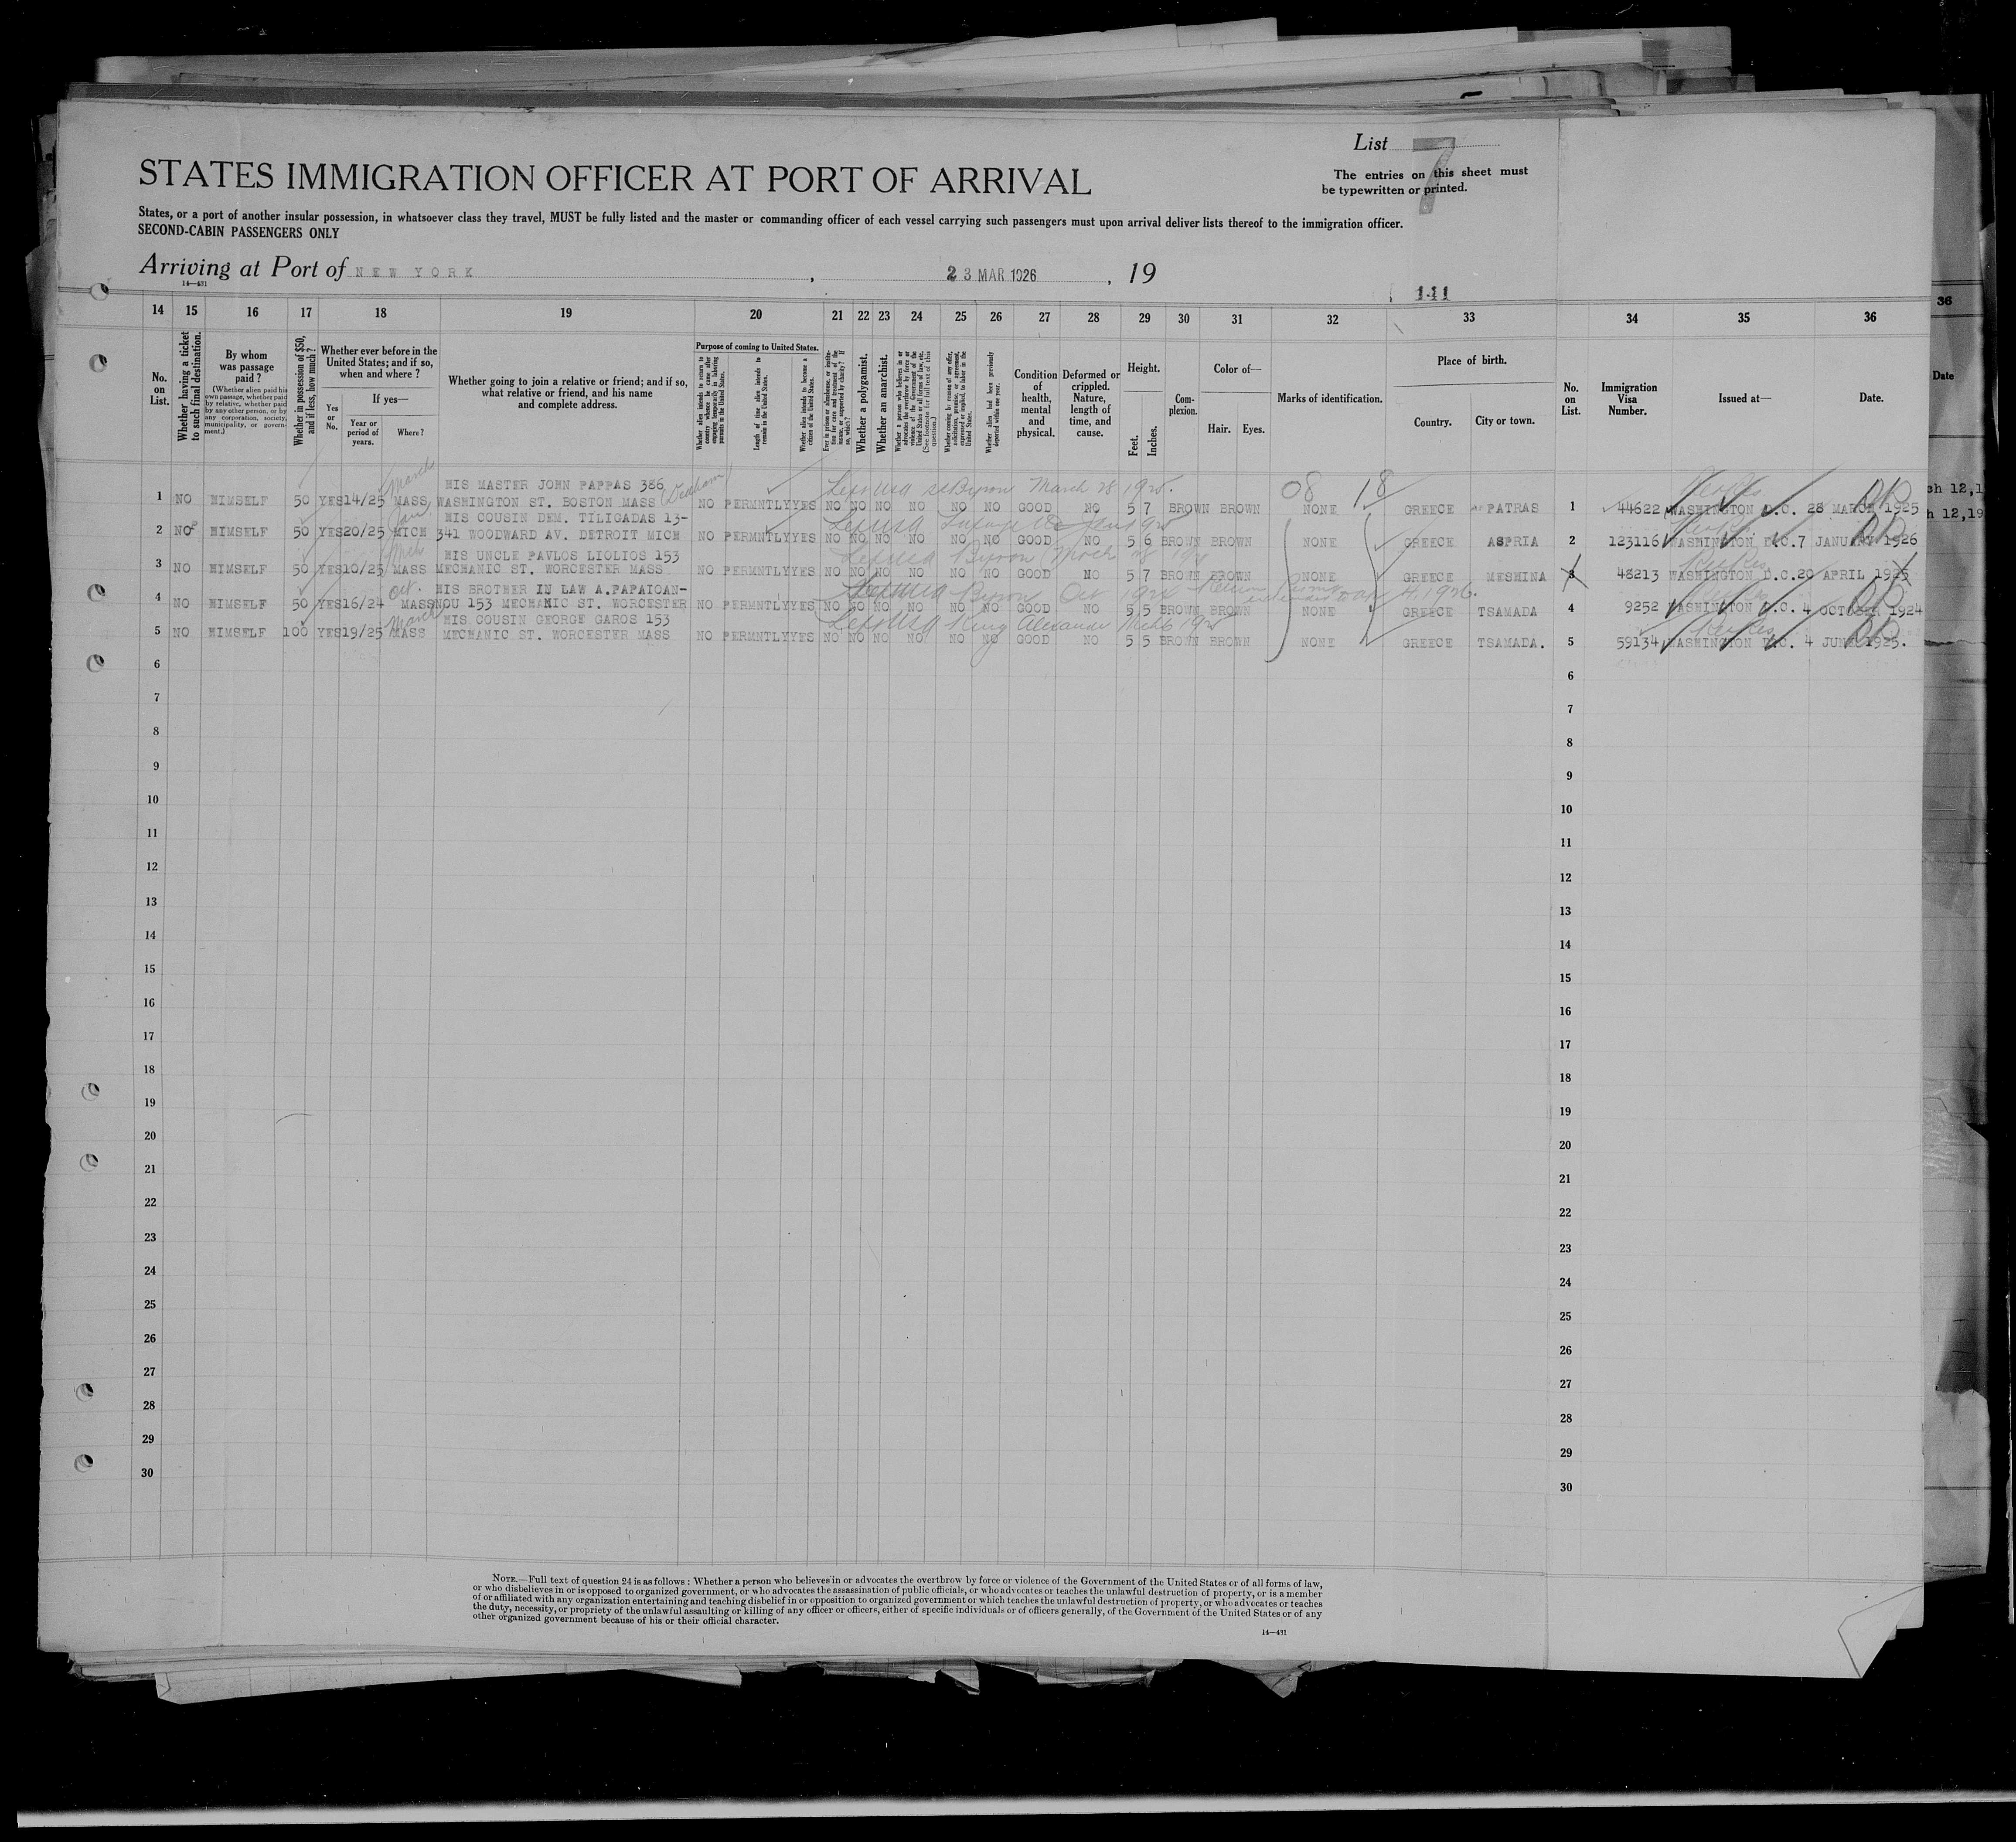 List 7
STATES IMMIGRATION OFFICER AT PORT OF ARRIVAL
The entries on this sheet must
be typewritten or printed.
States, or a port of another insular possession, in whatsoever class they travel, MUST be fully listed and the master or commanding officer of each vessel carrying such passengers must upon arrival deliver lists thereof to the immigration officer.
SECOND-CABIN PASSENGERS ONLY
Arriving at Port of NEW YORK, 23 MAR 1926, 19
14—431
141
14 15 16 17 18 19 20 21 22 23 24 25 26 27 28 29 30 31 32 33 34 35 36 36
No. on List.
Whether having a ticket to such final destination.
By whom was passage paid?
(Whether alien paid his own passage, whether paid by relative, whether paid by any other person, or by any corporation, society, municipality, or government.)
Whether in possession of $50, and if less, how much?
Whether ever before in the United States; and if so, when and where?
Yes or No.
If yes—
Year or period of years.
Where?
Whether going to join a relative or friend; and if so, what relative or friend, and his name and complete address.
Purpose of coming to United States.
Whether alien intends to return to country whence he came after engaging temporarily in laboring pursuits in the United States.
Length of time alien intends to remain in the United States.
Whether alien intends to become a citizen of the United States.
Ever in prison or almshouse, or institution for care and treatment of the insane, or supported by charity? If so, which?
Whether a polygamist.
Whether an anarchist.
Whether a person who believes in or advocates the overthrow by force or violence of the Government of the United States or all forms of law, etc. (See footnote for full text of this question.)
Whether coming by reason of any offer, solicitation, promise, or agreement, expressed or implied, to labor in the United States.
Whether alien had been previously deported within one year.
Condition of health, mental and physical.
Deformed or crippled. Nature, length of time, and cause.
Height.
Feet.
Inches.
Complexion.
Color of—
Hair.
Eyes.
Marks of identification.
Place of birth.
Country.
City or town.
No. on List.
Immigration Visa Number.
Issued at—
Date.
Date
March
HIS MASTER JOHN PAPPAS 386
Dedham
Left USA ss Byron March 28 1925.
08 18
1 NO HIMSELF 50 YES 14/25 MASS WASHINGTON ST. BOSTON MASS NO PERMNTLY YES NO NO NO NO NO NO GOOD NO 5 7 BROWN BROWN NONE GREECE PATRAS 1 44622 WASHINGTON D.C. 28 MARCH 1925
Jan
HIS COUSIN DEM. TILIGADAS 13-
2 NO HIMSELF 50 YES 20/25 MICH 341 WOODWARD AV. DETROIT MICH NO PERMNTLY YES NO NO NO NO NO NO GOOD NO 5 6 BROWN BROWN NONE GREECE ASPRIA 2 123116 WASHINGTON D.C. 7 JANUARY 1926
HIS UNCLE PAVLOS LIOLIOS 153
Byron
3 NO HIMSELF 50 YES 10/25 MASS MECHANIC ST. WORCESTER MASS NO PERMNTLY YES NO NO NO NO NO NO GOOD NO 5 7 BROWN BROWN NONE GREECE MESHINA 3 48213 WASHINGTON D.C. 20 APRIL 1925
Oct.
HIS BROTHER IN LAW A.PAPAIOAN-
Left USA Byron Oct
4 NO HIMSELF 50 YES 16/24 MASS NOU 153 MECHANIC ST. WORCESTER NO PERMNTLY YES NO NO NO NO NO NO GOOD NO 5 5 BROWN BROWN NONE GREECE TSAMADA 4 9252 WASHINGTON D.C. 4 OCTOBER 1924
March
HIS COUSIN GEORGE GAROS 153
Left USA King Alexander
5 NO HIMSELF 100 YES 19/25 MASS MECHANIC ST. WORCESTER MASS NO PERMNTLY YES NO NO NO NO NO NO GOOD NO 5 5 BROWN BROWN NONE GREECE TSAMADA. 5 59134 WASHINGTON D.C. 4 JUNE 1925.
6 6
7 7
8 8
9 9
10 10
11 11
12 12
13 13
14 14
15 15
16 16
17 17
18 18
19 19
20 20
21 21
22 22
23 23
24 24
25 25
26 26
27 27
28 28
29 29
30 30
NOTE.—Full text of question 24 is as follows: Whether a person who believes in or advocates the overthrow by force or violence of the Government of the United States or of all forms of law,
or who disbelieves in or is opposed to organized government, or who advocates the assassination of public officials, or who advocates or teaches the unlawful destruction of property, or is a member
of or affiliated with any organization entertaining and teaching disbelief in or opposition to organized government or which teaches the unlawful destruction of property, or who advocates or teaches
the duty, necessity, or propriety of the unlawful assaulting or killing of any officer or officers, either of specific individuals or of officers generally, of the Government of the United States or of any
other organized government because of his or their official character.
14—431